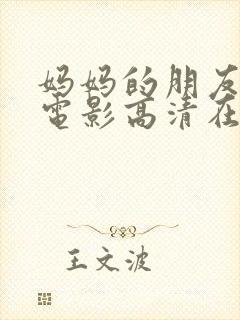 妈妈的朋友
電影高清在
王文波